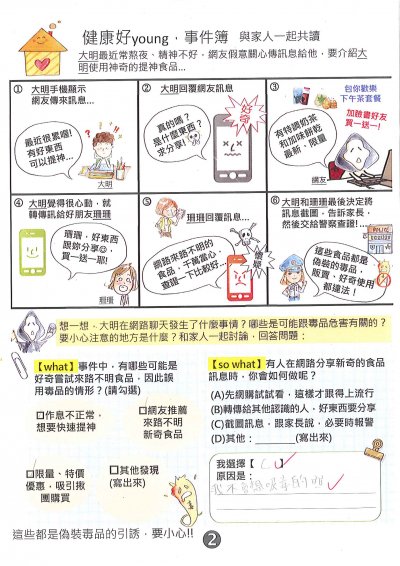 健康好young，事件簿 與家人一起共讀
大明最近常熬夜、精神不好，網友假意關心傳訊息給他，要介紹大
明使用神奇的提神食品…
① 大明手機顯示
網友傳來訊息…
最近很累喔!
有好東西
可以提神…
大明
② 大明回覆網友訊息
真的嗎?
是什麼東西?
求分享!
好奇
③
包你歡樂
下午茶套餐
加臉書好友
買一送一!
有特調奶茶
和加味餅乾
最新、限量
網友
④ 大明覺得很心動，就
轉傳訊給好朋友珊珊
珊珊，好東西
跟妳分享☺
買一送一耶!
珊珊
⑤ 珊珊回覆訊息…
網路來路不明的
食品，千萬當心，
查證一下比較好…
懷疑
⑥ 大明和珊珊最後決定將
訊息截圖，告訴家長，
然後交給警察查證!…
這些食品都是
偽裝的毒品，
販賣、好奇使用
都違法!
想一想，大明在網路聊天發生了什麼事情？哪些是可能跟毒品危害有關的？
要小心注意的地方是什麼？和家人一起討論，回答問題：
【what】事件中，有哪些可能是
好奇嘗試來路不明食品，因此誤
用毒品的情形？(請勾選)
□作息不正常，
想要快速提神
□網友推薦
來路不明
新奇食品
□限量、特價
優惠，吸引揪
團購買
□其他發現
(寫出來)
【so what】有人在網路分享新奇的食品
訊息時，你會如何做呢？
(A)先網購試試看，這樣才跟得上流行
(B)轉傳給其他認識的人，好東西要分享
(C)截圖訊息，跟家長說，必要時報警
(D)其他：________(寫出來)
我選擇【 C 】
原因是：
這些都是偽裝毒品的引誘，要小心!!
2